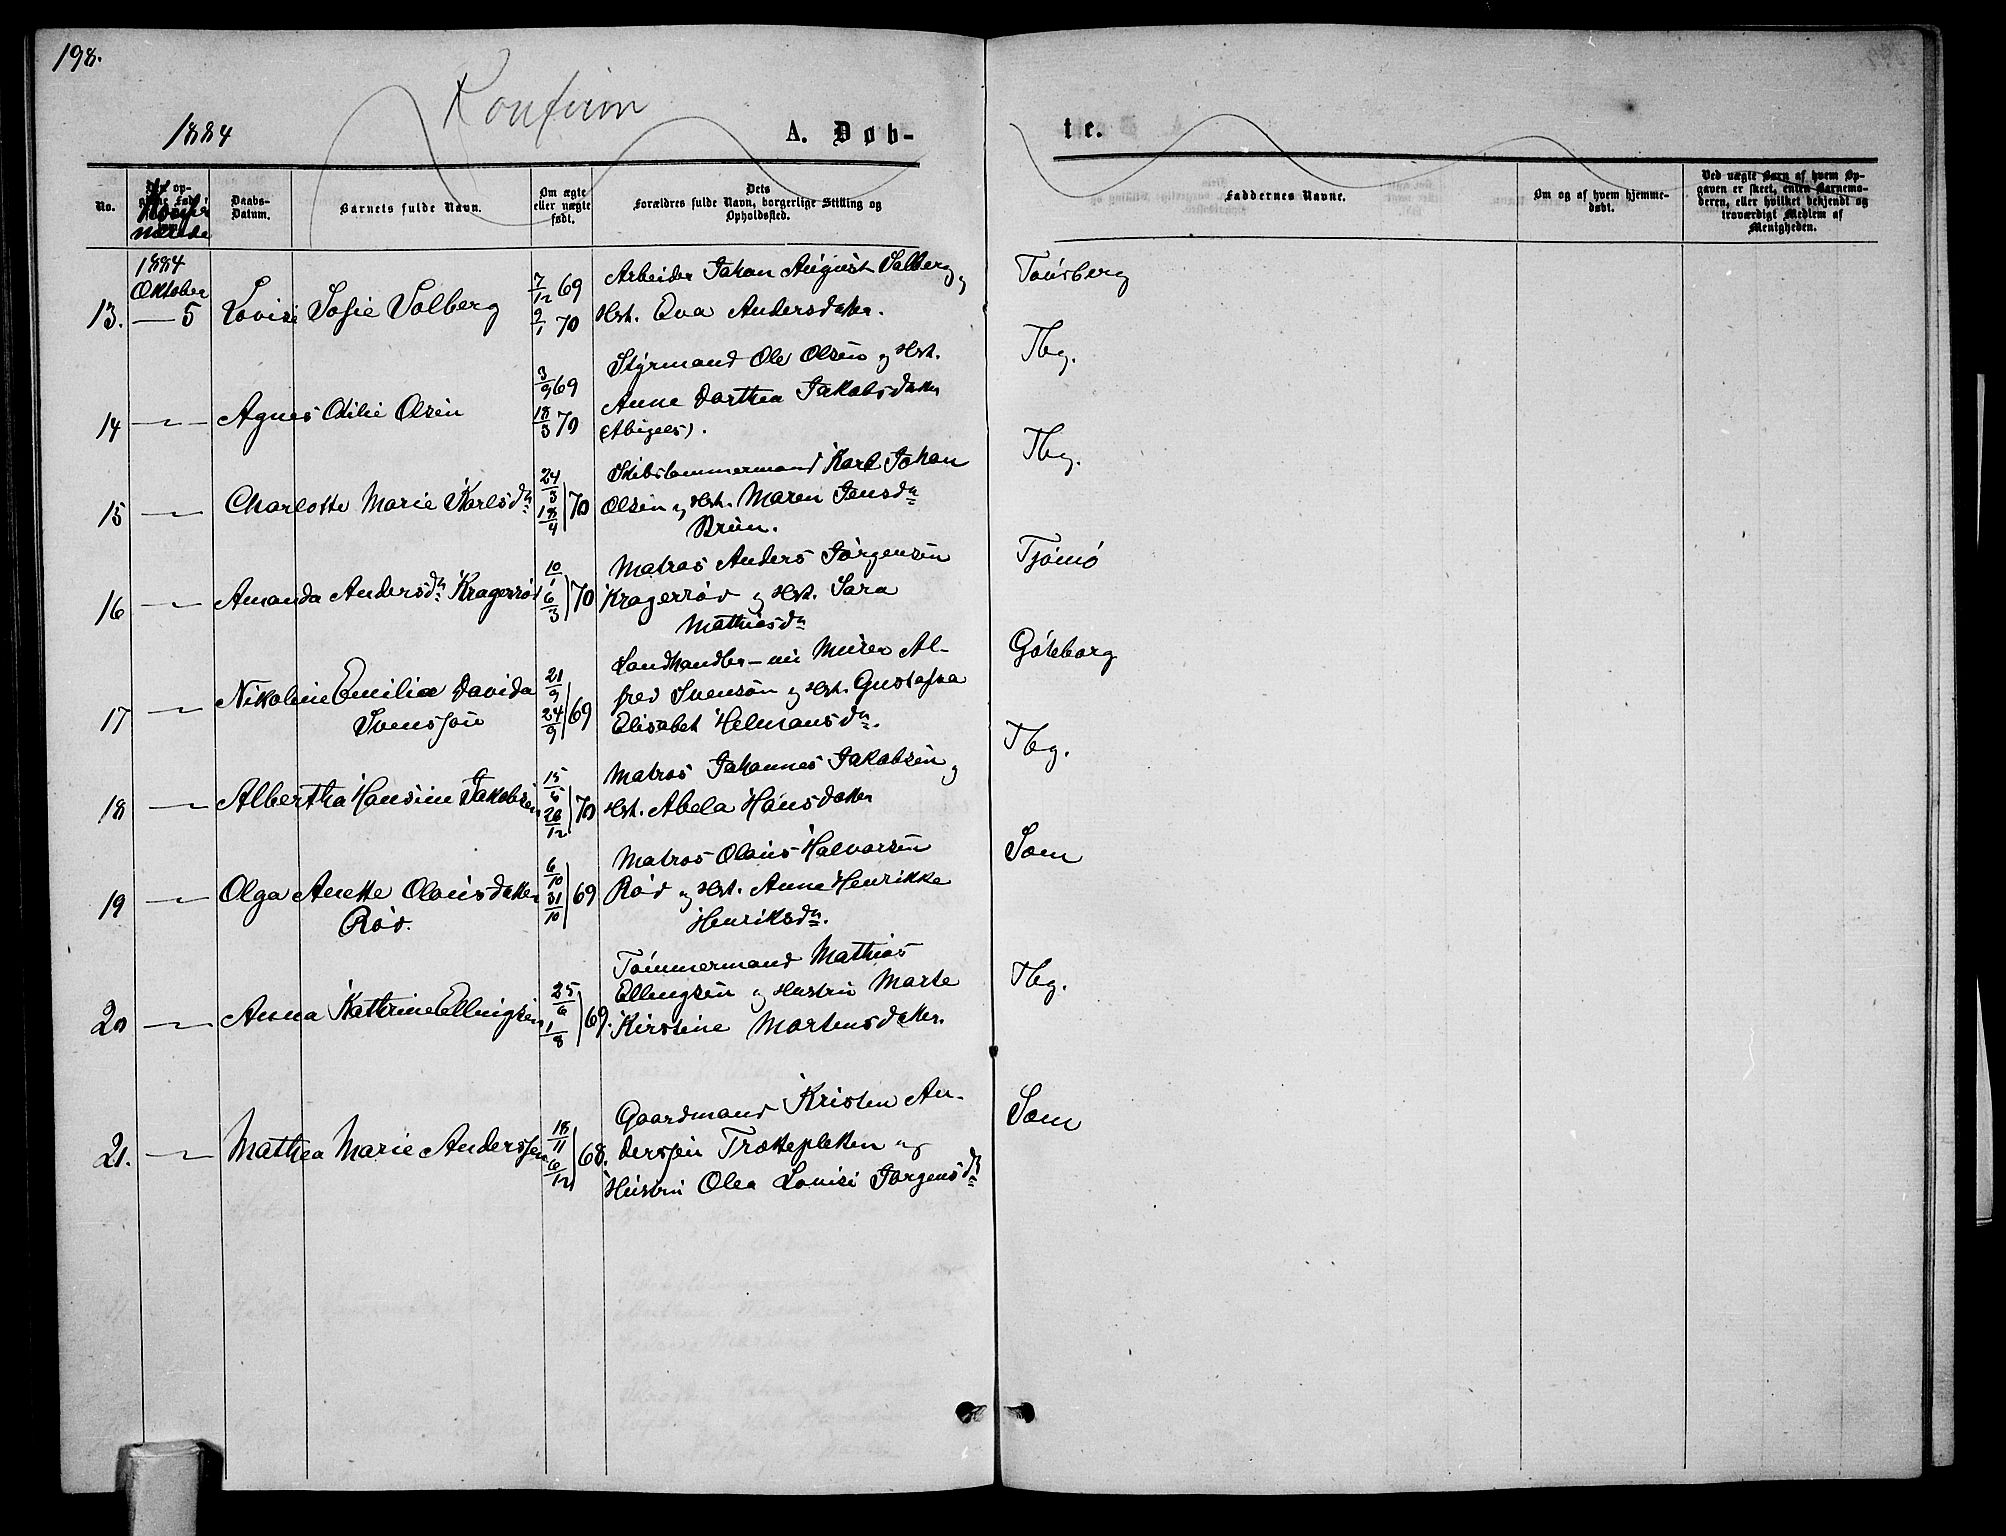 198.
Konfirm
1884
A. Døb-
te.
No.
Daabs-
Datum.
Barnets fulde Navn.
Om ægte
eller uægte
født.
Dets
Forældres fulde Navn, borgerlige Stilling og
Opholdssted.
Faddernes Navne.
Om og af hvem hjemme-
døbt.
Ved uægte Barn af hvem Op-
gaven er skeet, enten Barnemo-
deren, eller hvilket bekjendt og
troværdigt Medlem af
Menigheden.
1884
Oktober
13. — 5 Lovise Sofie Solberg 7/12 69 2/1 70
Arbeider Johan August Solberg og
Hst. Eva Andersdatter.
Tønsberg
14 — Agnes Otilie Olsen 3/9 69 18/3 70
Styrmand Ole Olsen og Hst.
Anne Dorthea Jakobsdatter
Tbg.
15 — Charlotte Marie Karlsdr 24/3 18/4 70
Skibstømmermand Karl Johan
Olsen og Hst. Maren Jensdr
Brun.
Tbg.
16 — Amanda Andersdr Kragerrød 10/1 6/3 70
Matros Anders Jørgensen
Kragerrød og Hst. Sara
Mathiasdr
Tjømø
17 — Nikoline Emilie Davida
Svensson 21/9 24/9 69
Landhandler – nu Murer Al-
fred Svenson og Hst. Gustafva
Elisabet Helmansdr.
Göteborg
18 — Albertha Hansine Jakobsen 15/6 26/12 70
Matros Johannes Jakobsen og
Hst. Abela Hansdatter
Tbg.
19 — Olga Anette Olausdatter
Rød. 6/10 31/10 69
Matros Olaus Halvorsen
Rød og Hst. Anne Henrikke
Henriksdr.
Sem
20 — Anna Kathrine Ellingsen 25/6 1/8 69.
Tømmermand Mathias
Ellingsen og Hustru Marte
Kirstine Mortensdatter.
Tbg.
21. — Mathea Marie Anderssen 18/11 6/12 68.
Gaardmand Kristen An-
derssen Trættepletten og
Hustru Olea Lovise Jørgensdr
Sem